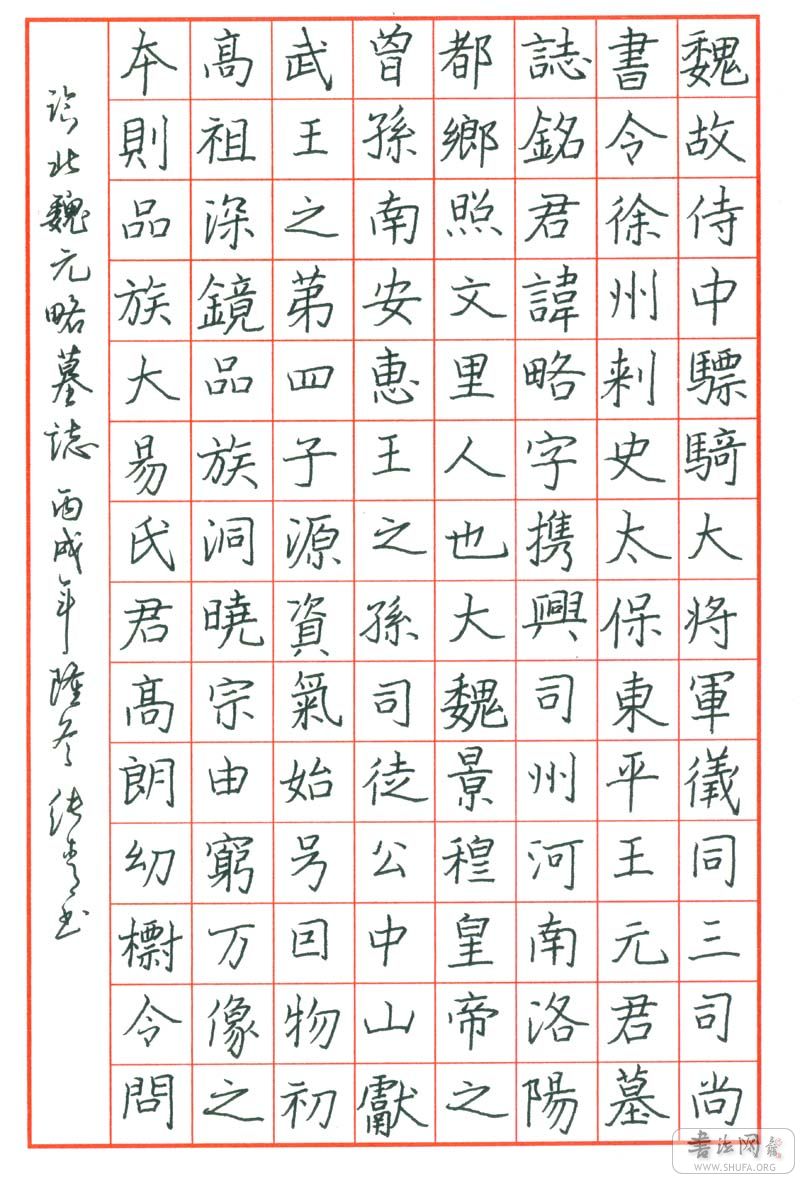 魏故侍中驃騎大将軍儀同三司尚
書令徐州刾史太保東平王元君墓
誌銘君諱略字携興司州河南洛陽
都鄉照文里人也大魏景穆皇帝之
曾孫南安恵王之孫司徒公中山獻
武王之苐四子源資氣始号囙物初
髙祖深鏡品族洞曉宗由窮万像之
本則品族大易氏君髙朗幼檦令問
临北魏元略墓誌 丙戌年隆冬
書法网
WWW.SHUFA.ORG